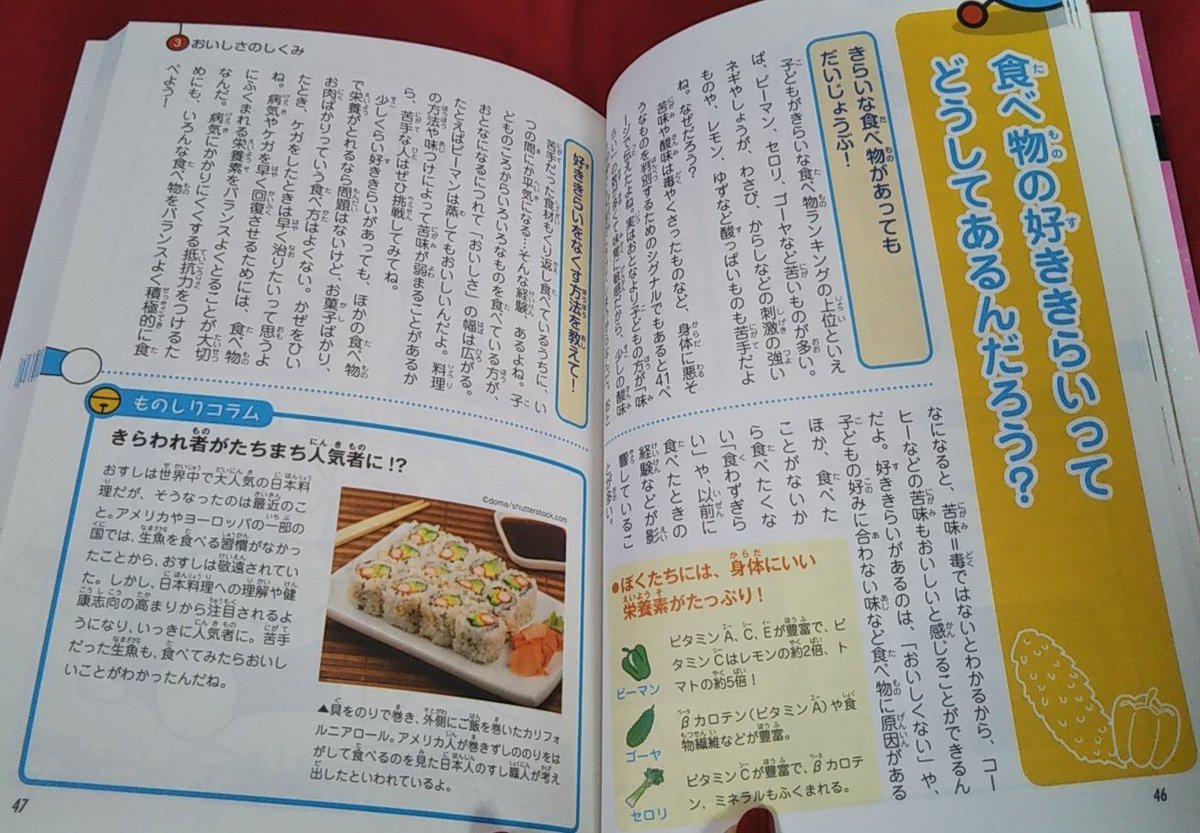 食べ物の好ききらいって
どうしてあるんだろう?
きらいな食べ物があっても
だいじょうぶ!
子どもがきらいな食べ物ランキングの上位といえ
ば、ピーマン、セロリ、ゴーヤなど苦いものが多い。
ネギやしょうが、わさび、からしなどの刺激の強い
ものや、レモン、ゆずなど酸っぱいものも苦手だよ
ね。なぜだろう?
苦味や酸味は毒やくさったものなど、身体に悪そ
うなものを判別するためのシグナルでもあると41ペ
ージで伝えたよね。実はおとなより子どもの方が、味
味覚に敏感だから、少しの酸味
なになると、苦味=毒ではないとわかるから、コー
ヒーなどの苦味もおいしいと感じることができるん
だよ。好ききらいがあるのは、「おいしくない」や、
子どもの好みに合わない味など食べ物に原因がある
ほか、食べた
ことがないか
ら食べたくな
い「食わずぎら
い」や、以前に
食べたときの
経験などが影
響しているこ
とが多い。
●ぼくたちには、身体にいい
栄養素がたっぷり!
ピーマン
ビタミンA、C、Eが豊富で、ビ
タミンCはレモンの約2倍、ト
マトの約5倍!
ゴーヤ
βカロテン(ビタミンA)や食
物繊維などが豊富。
セロリ
ビタミンCが豊富で、βカロテ
ン、ミネラルもふくまれる。
46
3 おいしさのしくみ
好ききらいをなくす方法を教えて!
苦手だった食材もくり返し食べているうちに、い
つの間にか平気になる…そんな経験、あるよね。子
どものころからいろいろなものを食べている方が、
おとなになるにつれて「おいしさ」の幅は広がる。
たとえばピーマンは蒸してもおいしいんだよ。料理
の方法や味つけによって苦味が弱まることがあるか
ら、苦手な人はぜひ挑戦してみてね。
少しくらい好ききらいがあっても、ほかの食べ物
で栄養がとれるなら問題はないけど、お菓子ばかり、
お肉ばかりっていう食べ方はよくない。かぜをひい
たとき、ケガをしたときは早く治りたいって思うよ
ね。病気やケガを早く回復させるためには、食べ物
にふくまれる栄養素をバランスよくとることが大切
なんだ。病気にかかりにくくする抵抗力をつけるた
めにも、いろんな食べ物をバランスよく積極的に食
べよう!
ものしりコラム
きらわれ者がたちまち人気者に!?
おすしは世界中で大人気の日本料
理だが、そうなったのは最近のこ
と。アメリカやヨーロッパの一部の
国では、生魚を食べる習慣がなかっ
たことから、おすしは敬遠されてい
た。しかし、日本料理への理解や健
康志向の高まりから注目されるよ
うになり、いっきに人気者に。苦手
だった生魚も、食べてみたらおいし
いことがわかったんだね。
©doma/shutterstock.com
▲具をのりで巻き、外側にご飯を巻いたカリフォ
ルニアロール。アメリカ人が巻きずしののりをは
がして食べるのを見た日本人のすし職人が考え
出したといわれているよ。
47